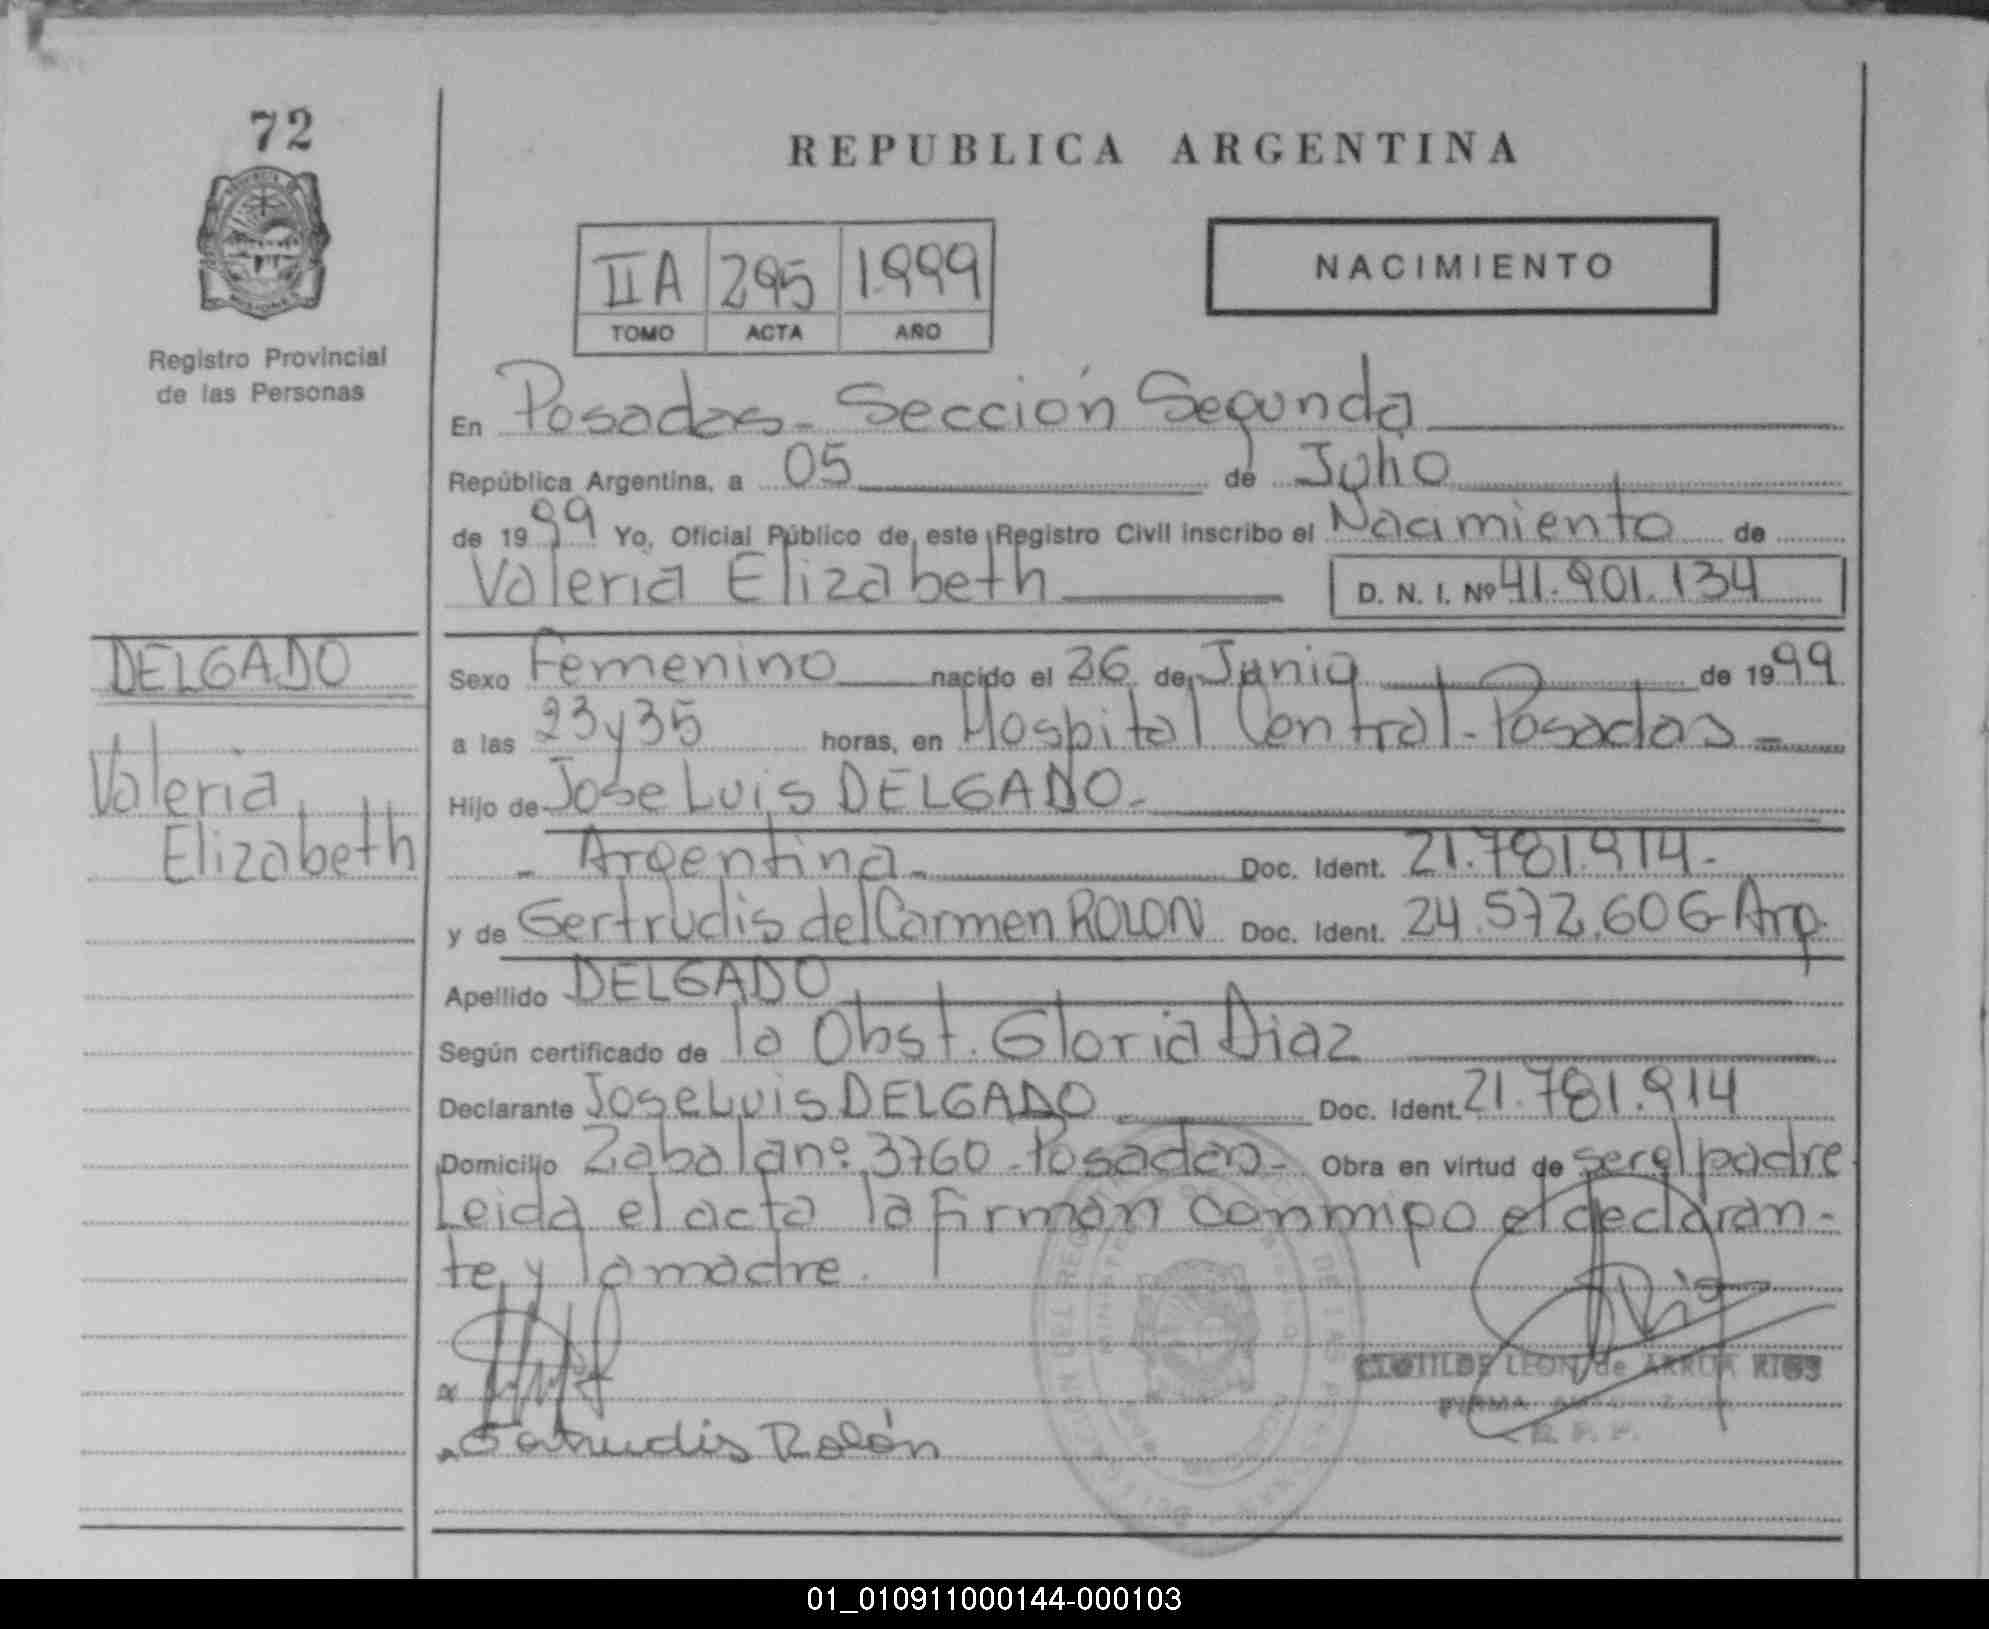 72
REPUBLICA ARGENTINA
IIA 295 1.999
TOMO ACTA AÑO
NACIMIENTO
Registro Provincial
de las Personas
En Posadas - Sección Segunda
República Argentina, a 05 de Julio
de 1999 Yo, Oficial Público de este Registro Civil inscribo el Nacimiento de
Valeria Elizabeth D. N. I. Nº 41.901.134
DELGADO
Valeria
Elizabeth
Sexo Femenino nacido el 26 de Junio de 1999
a las 23 y 35 horas, en Hospital Central - Posadas -
Hijo de Jose Luis DELGADO -
- Argentina - Doc. Ident. 21.781.914 -
y de Gertrudis del Carmen ROLON Doc. Ident. 24.572.606 - Arg.
Apellido DELGADO
Según certificado de la Obst. Gloria Diaz
Declarante Jose Luis DELGADO Doc. Ident. 21.781.914
Domicilio Zabala nº 3760 - Posadas - Obra en virtud de ser el padre
Leida el acta la firman conmigo el declaran-
te y la madre.
CLOTILDE LEON de ARRUA RIOS
FIRMA
R. P. P.
Gertrudis Rolón
01_010911000144-000103